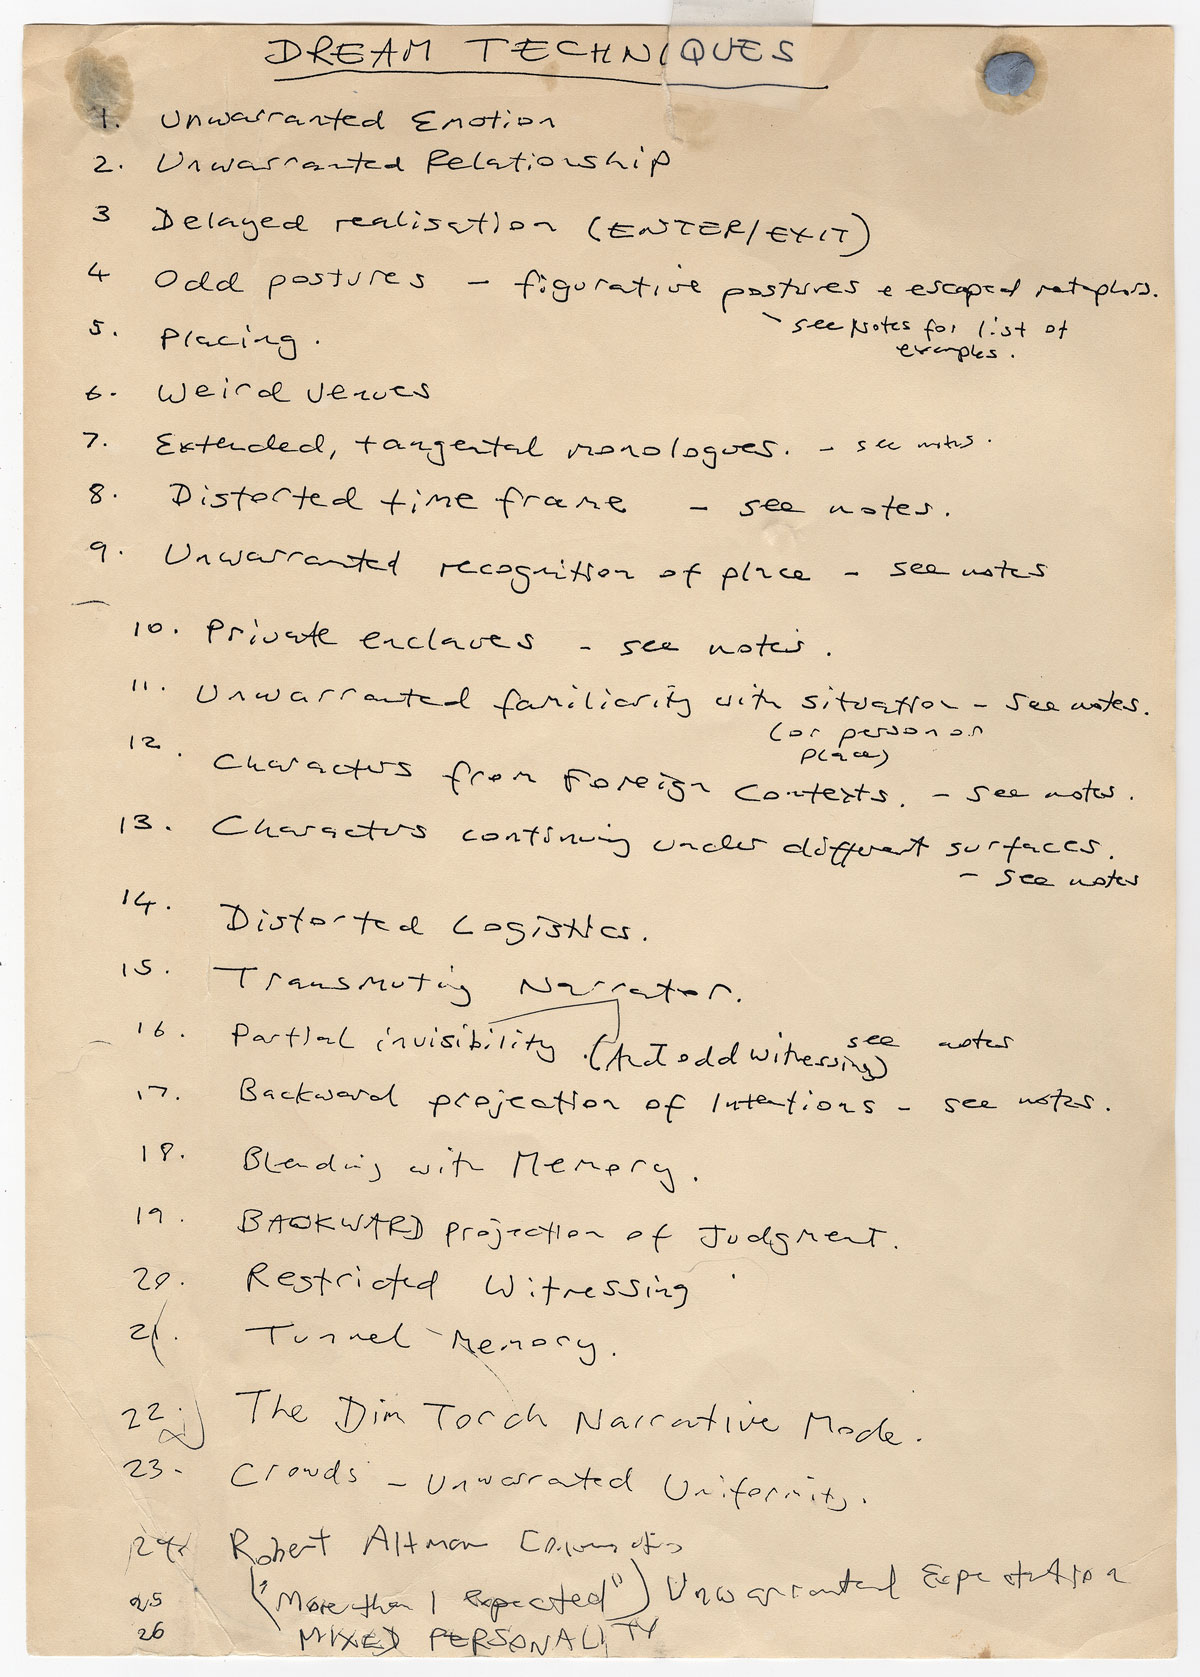 DREAM TECHNIQUES
1. Unwarranted Emotion
2. Unwarranted Relationship
3 Delayed realisation (ENTER/EXIT)
4 Odd postures - figurative postures & escaped metaphors.
- see Notes for list of
examples.
5. Placing.
6. Weird Venues
7. Extended, tangental monologues. - see notes.
8. Distorted time frame - see notes.
9. Unwarranted recognition of place - see notes
10. Private enclaves - see notes.
11. Unwarranted familiarity with situation - see notes.
(or person or
place)
12. Characters from Foreign Contexts. - see notes.
13. Characters continuing under different surfaces.
- see notes
14. Distorted Logistics.
15. Transmuting Narrator.
16. Partial invisibility. (And odd witnessing) see notes
17. Backward projection of Intentions - see notes.
18. Blending with Memory.
19. BACKWARD projection of Judgment.
20. Restricted Witnessing
21. Tunnel Memory.
22. The Dim Torch Narrative Mode.
23. Crowds - Unwarrated Uniformity.
24. Robert Altman
25 ("More than I expected") Unwarranted Expectation
26 MIXED PERSONALITY